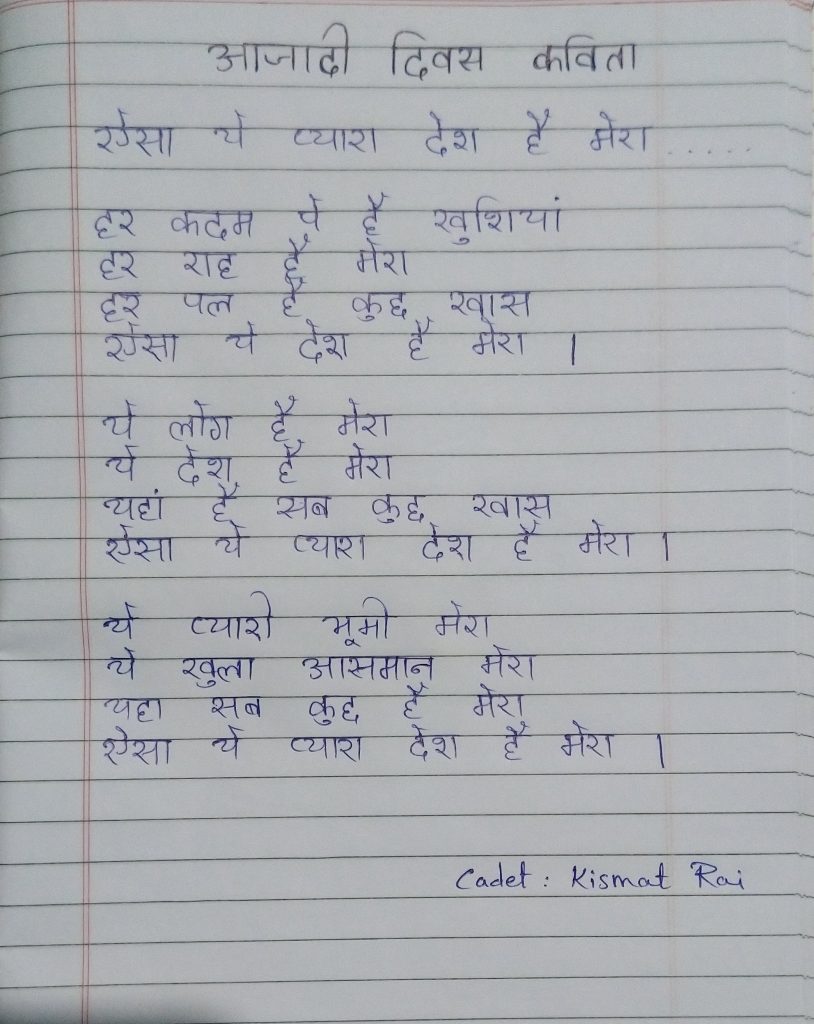 आजादी दिवस कविता
ऐसा ये प्यारा देश है मेरा .....
हर कदम पे है खुशियां
हर राह है मेरा
हर पल है कुछ खास
ऐसा ये देश है मेरा |
ये लोग है मेरा
ये देश है मेरा
यहां है सब कुछ खास
ऐसा ये प्यारा देश है मेरा |
ये प्यारी भूमी मेरा
ये खुला आसमान मेरा
यहा सब कुछ है मेरा
ऐसा ये प्यारा देश है मेरा |
Cadet : Kismat Rai